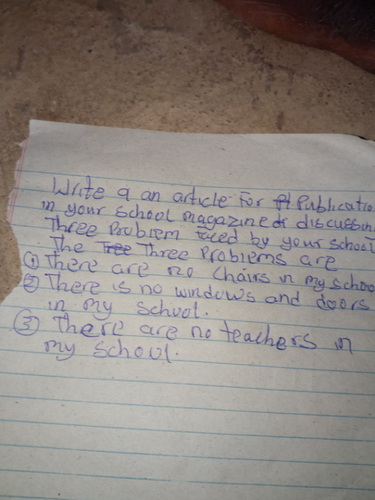 Write a an article for Publicatio
in your school magazine discussion
Three Problem faced by your school
The Tree Three Problems are
① There are no chairs in my schoo
② There is no windows and doors
in my school.
③ There are no teachers in
my school.